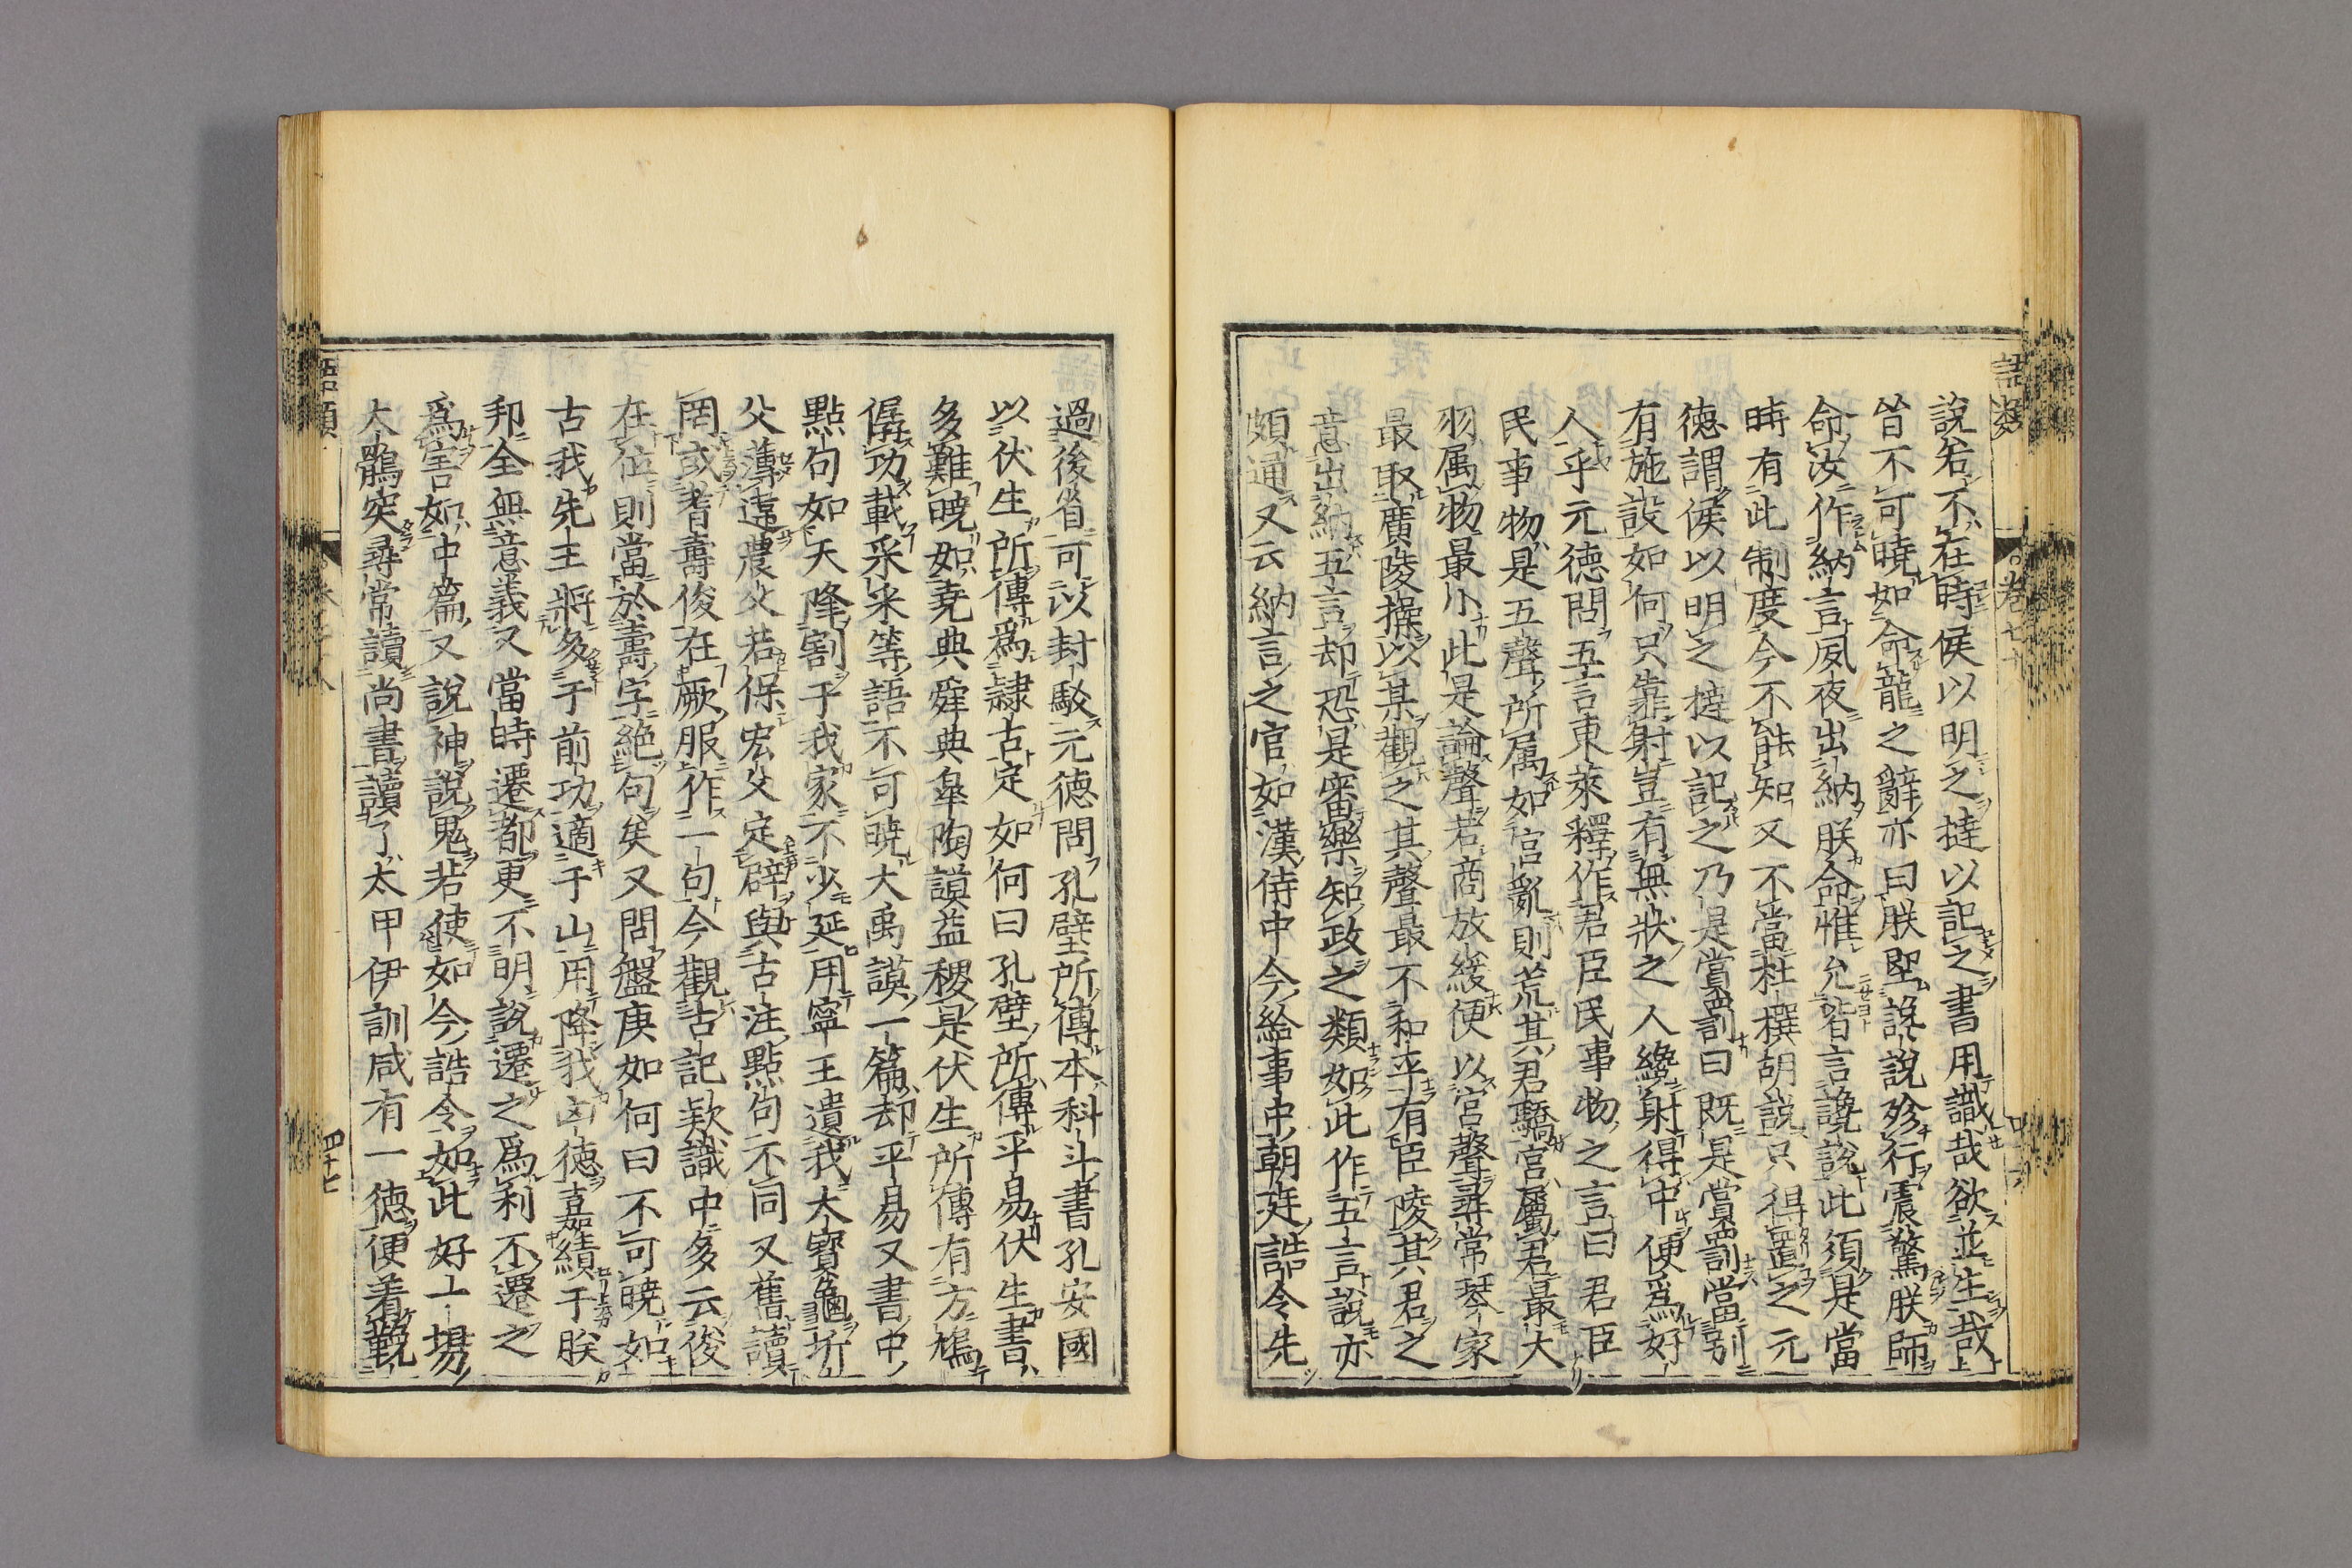 說若不在時侯以明之撻以記之書用識哉欲並生哉
皆不可曉如命龍之辭亦曰朕堲讒說殄行震驚朕師
命汝作納言夙夜出納朕命惟允皆言讒說此須是當
時有此制度今不能知又不當杜撰胡說只得置之元
德謂侯以明之撻以記之乃是賞罰曰既是賞罰當別
有施設如何只靠射豈有無狀之人纔射得中便為好
人乎元德問五言東萊釋作君臣民事物之言曰君臣
民事物是五聲所属如宮亂則荒其君驕宮屬君最大
羽属物最小此是論聲若商放緩便以宮聲尋常琴家
最取廣陵操以某觀之其聲最不和平有臣陵其君之
意出納五言却恐是審樂知政之類如此作五言說亦
頗通又云納言之官如漢侍中今給事中朝廷誥令先
過後省可以封駁元德問孔壁所傳本科斗書孔安國
以伏生所傳為隸古定如何曰孔壁所傳平易伏生書
多難曉如堯典舜典皐陶謨益稷是伏生所傳有方鳩
僝功載采采等語不可曉大禹謨一篇却平易又書中
點句如天降割于我家不少延用寧王遺我大寶龜圻
父薄違農父若保宏父定辟與古注點句不同又舊讀
罔或耆壽俊在厥服作一句今觀古記款識中多云俊
在位則當於壽字絕句矣又問盤庚如何曰不可曉如
古我先王將多于前功適于山用降我凶德嘉績于朕
邦全無意義又當時遷都更不明說遷之為利不遷之
為害如中篇又說神說鬼若使如今誥令如此好一場
大鶻突尋常讀尚書讀了太甲伊訓咸有一德便着鞔
語類
卷七十
語類
四十七